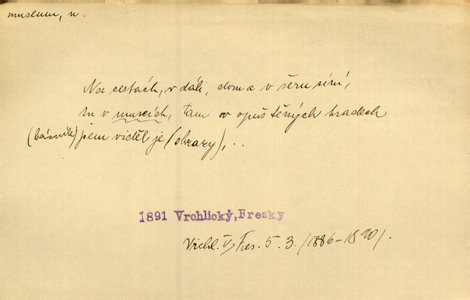 museum, n.
Na cestách, v dáli, doma v šeru síní,
tu v museích, tam v opuštěných hradech
(básník) jsem viděl je (obrazy), ..
1891 Vrchlický, Fresky
Vrchl. V, Fres. 5. 3. (1886–1890).